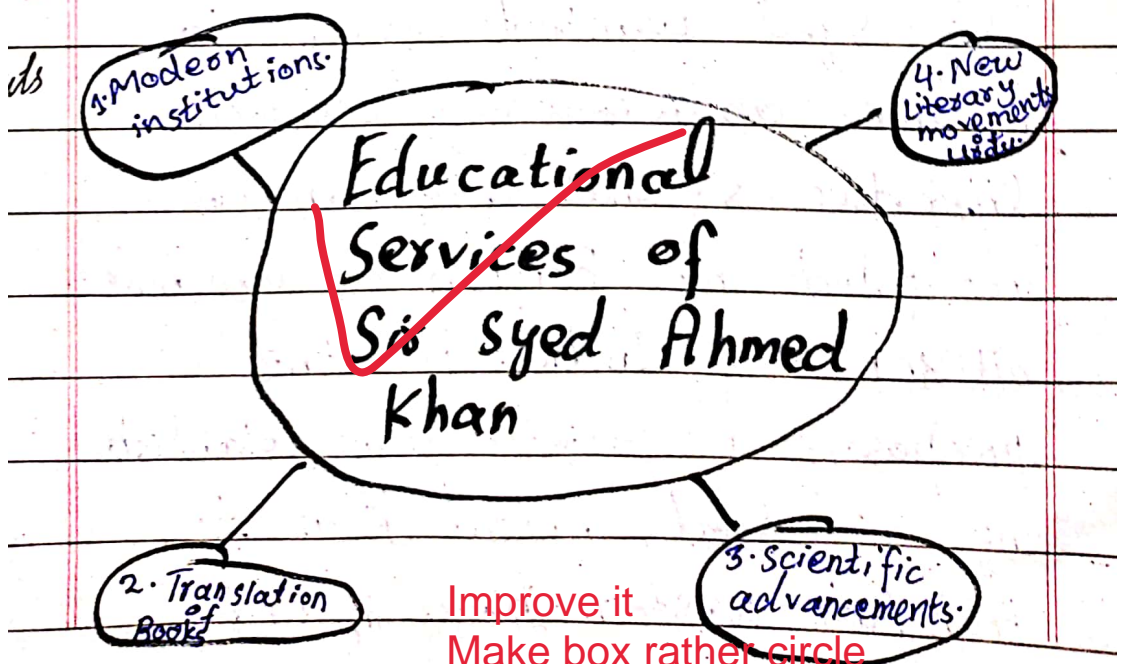 its
1. Modern
institutions.
4. New
Literary
movements
of
Urdu.
Educational
Services of
Sir Syed Ahmed
Khan
2. Translation
of
Books
3. Scientific
advancements.
Improve it
Make box rather circle